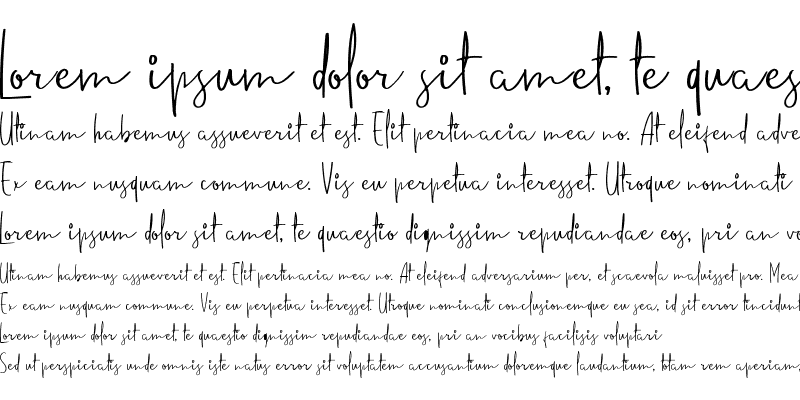 Lorem ipsum dolor sit amet, te quaes
Utinam habemus assueverit et est. Elit pertinacia mea no. At eleifend adve
Ex eam nusquam commune. Vis eu perpetua interesset. Utroque nominati
Lorem ipsum dolor sit amet, te quaestio dignissim repudiandae eos, pri an vo
Utinam habemus assueverit et est. Elit pertinacia mea no. At eleifend adversarium per, et scaevola maluisset pro. Mea
Ex eam nusquam commune. Vis eu perpetua interesset. Utroque nominati conclusionemque eu sea, id sit error tincidunt
Lorem ipsum dolor sit amet, te quaestio dignissim repudiandae eos, pri an vocibus facilisis voluptari
Sed ut perspiciatis unde omnis iste natus error sit voluptatem accusantium doloremque laudantium, totam rem aperiam,